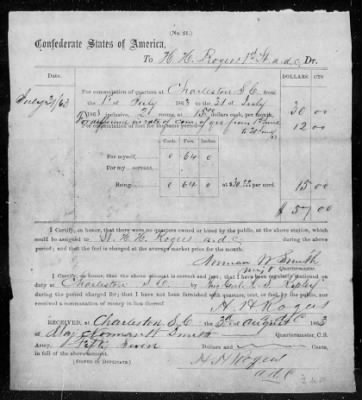 (No. 21.)
Confederate States of America,
To H. H. Rogers 1st Lt a d c, Dr.
DATE. DOLLARS CTS
July 31/63 For commutation of quarters at Charleston S. C. from
the 1st July 1863 to the 31st July
1863 inclusive, 2 rooms, at 15 00 dollars each, per month, 30 00
For commutation of fuel for
12 00
For myself, 0 64 0
For my servant,
Being 0 64 0 at $30.00 per cord, 15 00
$ 57.00
I Certify, on honor, that there were no quarters owned or hired by the public, at the above station, which
could be assigned to Lt. H. H. Rogers a d c during the above
period; and that the fuel is charged at the average market price for the month.
Norman W Smith
Maj & Quartermaster.
I Certify, on honor, that the above account is correct and just; that I have been regularly stationed on
duty at Charleston S. C. by Brig Genl R. S. Ripley
during the period charged for; that I have not been furnished with quarters, rent, or fuel, by the public, nor
received a commutation of money in lieu thereof.
H H Rogers
RECEIVED, at Charleston S. C the 3rd of August 1863
of Maj Norman W Smith Quartermaster, C.S.
Army, Fifty Seven Dollars and Cents,
in full of the above account.
(SIGNED IN DUPLICATE.)
H H Rogers
a d c